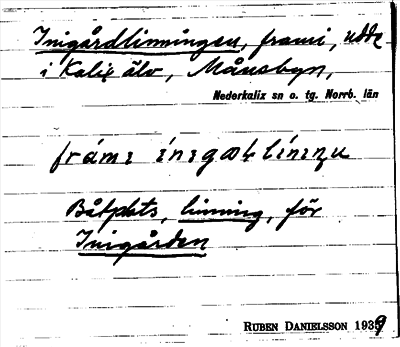 Inigårdlinningen, frami, udde
i Kalix älv, Månsbyn,
Nederkalix sn o. tg. Norrb. län
Båtplats, linning, för
Inigården
RUBEN DANIELSSON 1939